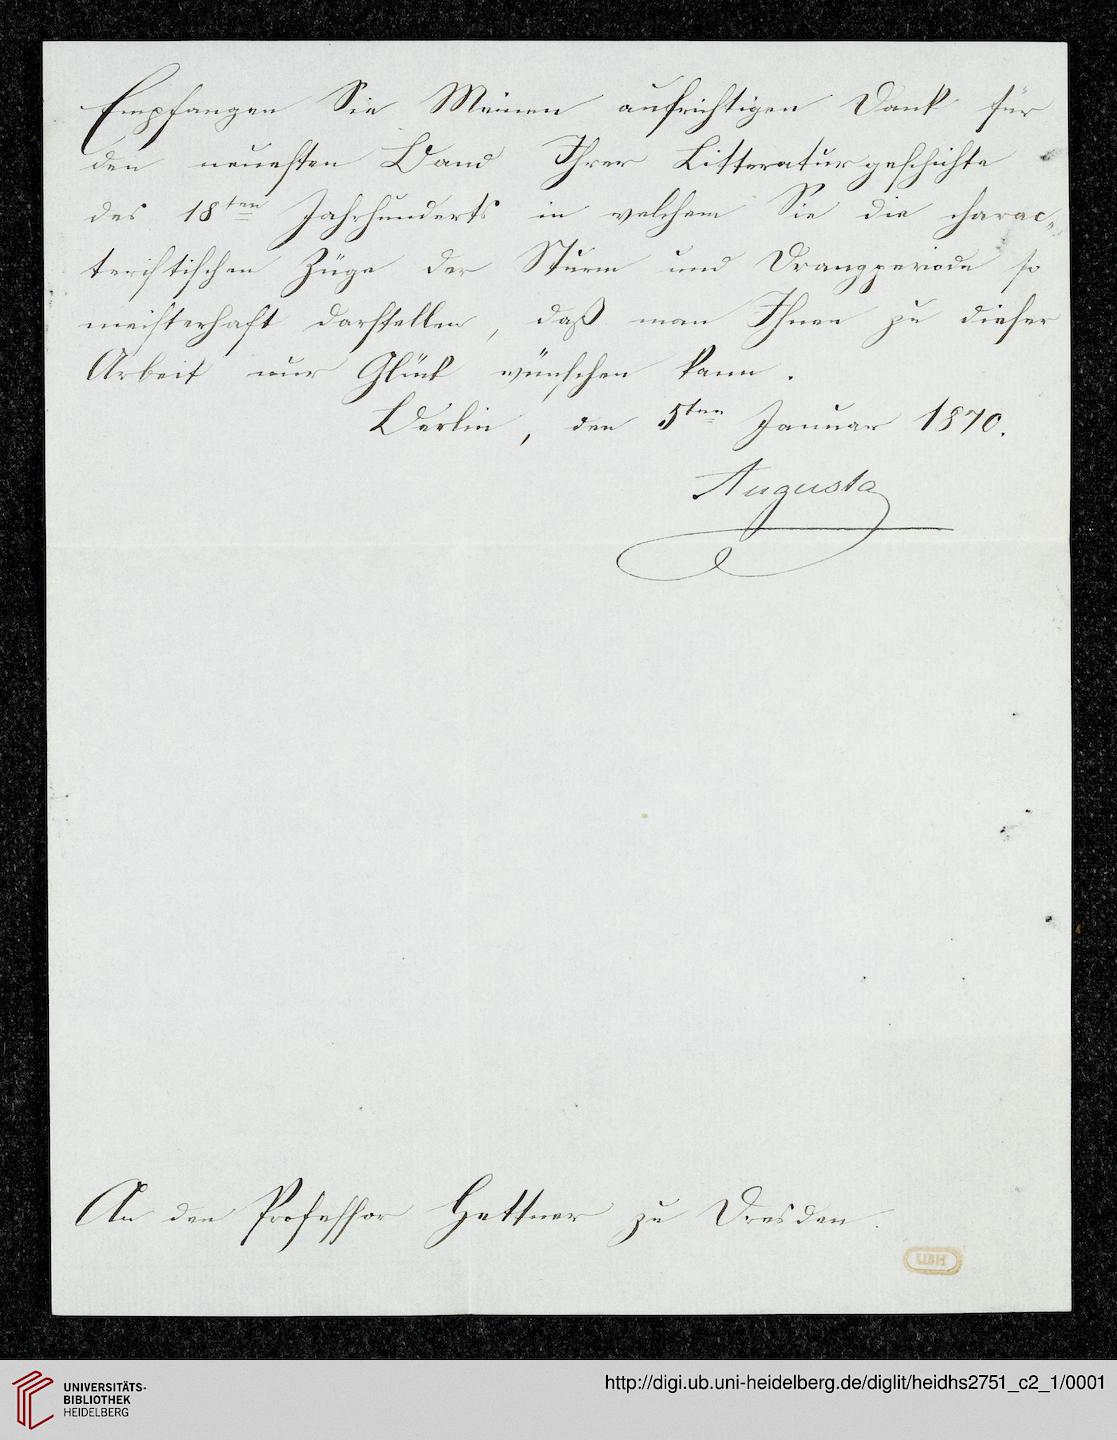 Empfangen Sie Meinen aufrichtigen Dank für
den neuesten Band Ihrer Litteraturgeschichte
des 18ten Jahrhunderts in welchem Sie die charac-
teristischen Züge der Sturm und Drangperiode so
meisterhaft darstellen, daß man Ihnen zu dieser
Arbeit nur Glück wünschen kann.
Berlin, den 5ten Januar 1870.
Augusta
An den Professor Hettner zu Dresden.
UBH
UNIVERSITÄTS-
BIBLIOTHEK
HEIDELBERG
http://digi.ub.uni-heidelberg.de/diglit/heidhs2751_c2_1/0001